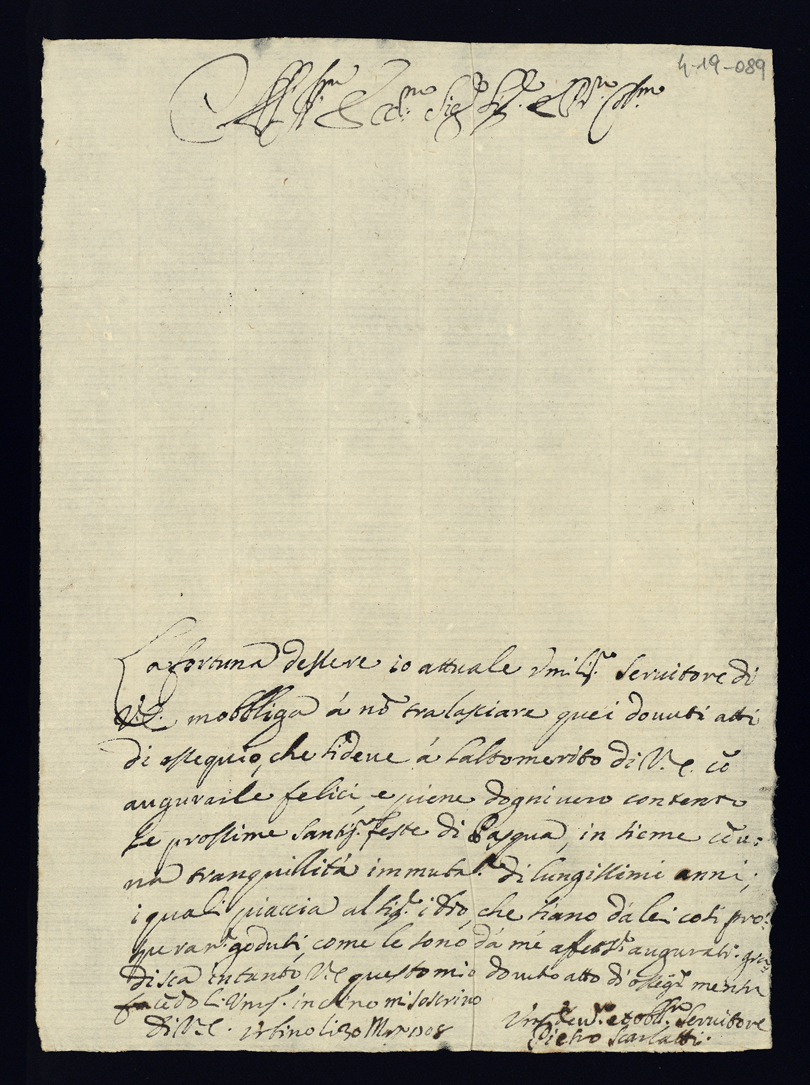 4-19-089
Ill.mo Ecc.mo Sig.r Sig.r e P.ron Col.mo
La fortuna dessere io attuale Vmiliss.o Seruitore di
V.E. mobbliga á nō tralasciare quei douuti atti
di ossequio, che si deue á laltomerito di V.E. cō
augurarle felici, e piene dogni uero contento
le prossime santiss.e feste di Pasqua, in sieme cō u:
na tranquillitá immutab.le di lungissimi anni;
i quali piaccia al Sig.r idio, che siano dá lei cosi pro:
speram.te goduti, come le sono dá mé affett.te augurati. gra:
disca intanto V.E. questo mio douuto atto di osseq.o mentre
facēdoli Vmiss. inchino mi soscriuo
di V.E. Urbino li 30 Mar. 1708
Vmiss. deu.o et obb.mo Seruitore
Pietro Scarlatti.